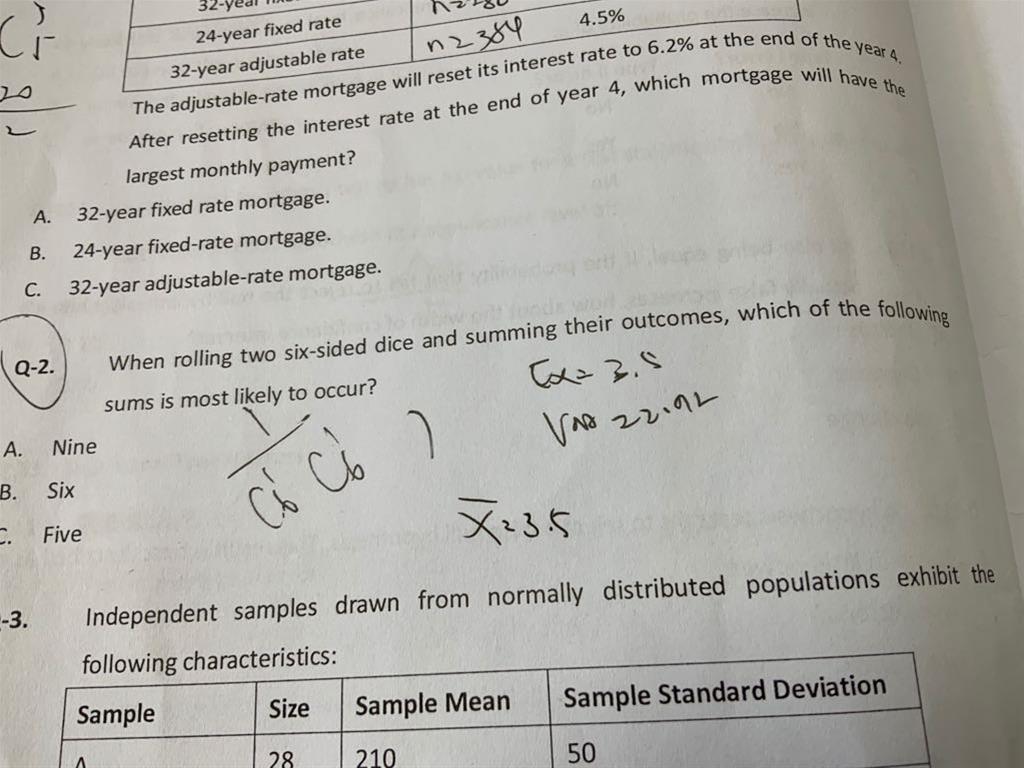 32-year
24-year fixed rate
n=384 4.5%
32-year adjustable rate
The adjustable-rate mortgage will reset its interest rate to 6.2% at the end of the year 4.
20
After resetting the interest rate at the end of year 4, which mortgage will have the
2
largest monthly payment?
A. 32-year fixed rate mortgage.
B. 24-year fixed-rate mortgage.
C. 32-year adjustable-rate mortgage.
Q-2. When rolling two six-sided dice and summing their outcomes, which of the following
sums is most likely to occur?
= 3.5
Var = 2.92
A. Nine
B. Six
x̄ = 3.5
C. Five
-3. Independent samples drawn from normally distributed populations exhibit the
following characteristics:
Sample Size Sample Mean Sample Standard Deviation
A 28 210 50